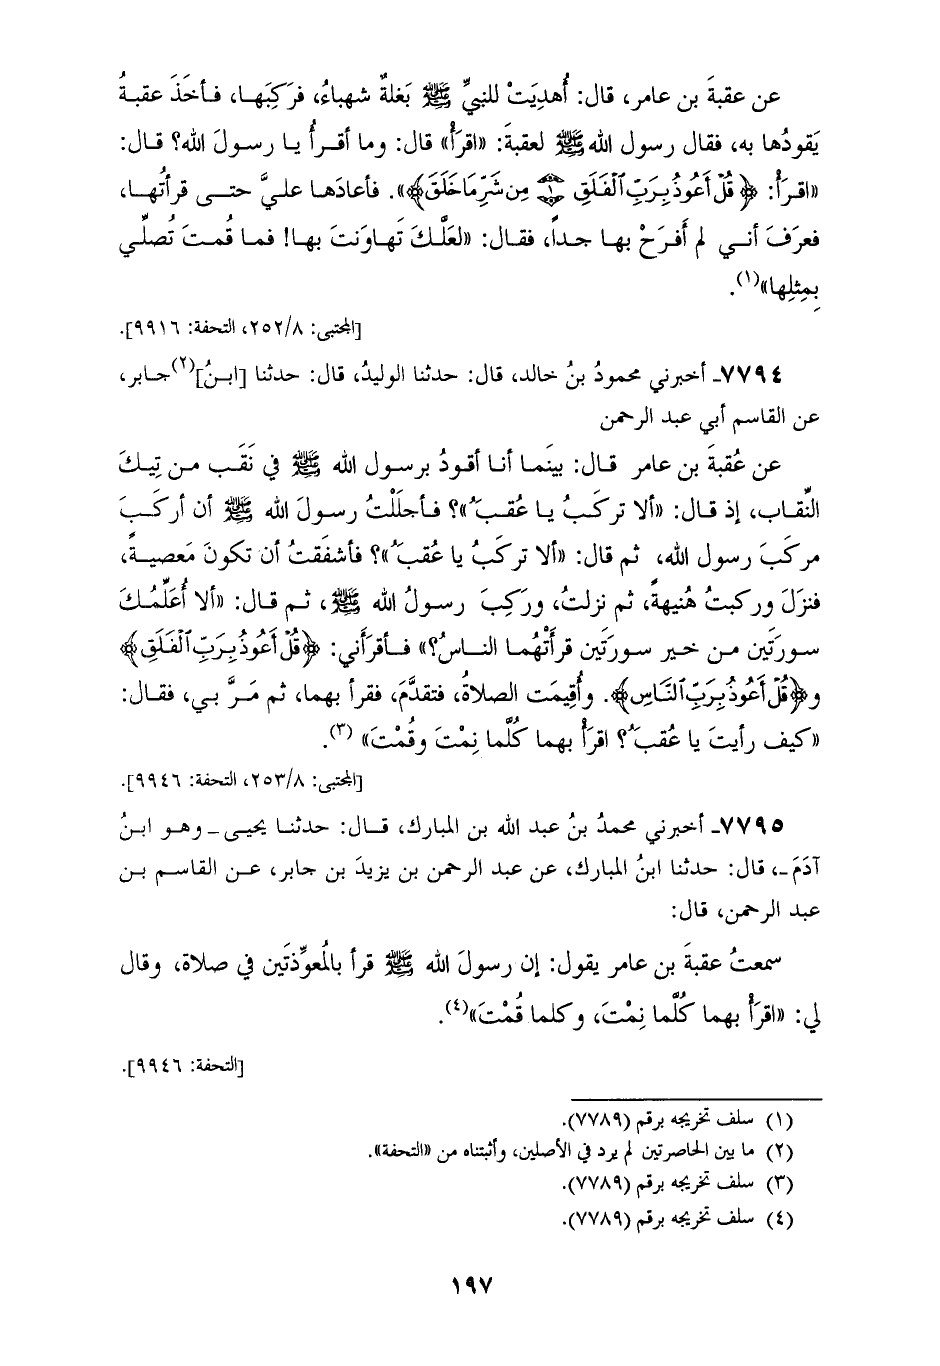 عن عقبةَ بن عامر، قال: أُهدِيَتْ للنبيِّ ﷺ بَغلةٌ شهباءُ، فرَكِبَها، فأخَذَ عقبةُ
يَقودُها به، فقال رسول الله ﷺ لعقبةَ: «اقرَأْ» قال: وما أقرأُ يا رسولَ الله؟ قال:
«اقرَأْ: ﴿قُلْ أَعُوذُ بِرَبِّ ٱلْفَلَقِ ۝١ مِن شَرِّ مَا خَلَقَ﴾». فأعادَها عليَّ حتى قرأتُها،
فعرَفَ أني لم أَفرَحْ بها جداً، فقال: «لعَلَّكَ تَهاوَنتَ بها! فما قُمتَ تُصلِّي
بِمِثلِها»(١).
[المجتبى: ٢٥٢/٨، التحفة: ٩٩١٦].
٧٧٩٤ـ أخبرني محمودُ بنُ خالد، قال: حدثنا الوليدُ، قال: حدثنا [ابنُ](٢) جابر،
عن القاسم أبي عبد الرحمن
عن عُقبةَ بن عامر قال: بينَما أنا أقودُ برسول الله ﷺ في نَقَب من تِيكَ
النِّقاب، إذ قال: «ألا تركَبُ يا عُقبَُ»؟ فأجلَلْتُ رسولَ الله ﷺ أن أركَبَ
مركَبَ رسول الله، ثم قال: «ألا تركَبُ يا عُقبَُ»؟ فأشفَقتُ أن تكونَ مَعصيةً،
فنزَلَ وركبتُ هُنيهةً، ثم نزلتُ، ورَكِبَ رسولُ الله ﷺ، ثم قال: «ألا أُعَلِّمُكَ
سورَتَين من خير سورَتَين قرأَتْهُما الناسُ؟» فأقرَأَني: ﴿قُلْ أَعُوذُ بِرَبِّ ٱلْفَلَقِ﴾
و﴿قُلْ أَعُوذُ بِرَبِّ ٱلنَّاسِ﴾. وأُقِيمَت الصلاةُ، فتقدَّمَ، فقرأ بهما، ثم مَرَّ بي، فقال:
«كيف رأيتَ يا عُقبَُ؟ اقرَأْ بهما كُلَّما نِمْتَ وقُمْتَ» (٣).
[المجتبى: ٢٥٣/٨، التحفة: ٩٩٤٦].
٧٧٩٥ـ أخبرني محمدُ بنُ عبد الله بن المبارك، قال: حدثنا يحيى ـ وهو ابنُ
آدَمَ ـ، قال: حدثنا ابنُ المبارك، عن عبد الرحمن بن يزيدَ بن جابر، عن القاسم بن
عبد الرحمن، قال:
سمعتُ عقبةَ بن عامر يقول: إن رسولَ الله ﷺ قرأ بالمُعوِّذتَين في صلاة، وقال
لي: «اقرَأْ بهما كُلَّما نِمْتَ، وكلما قُمْتَ»(٤).
[التحفة: ٩٩٤٦].
(١) سلف تخريجه برقم (٧٧٨٩).
(٢) ما بين الحاصرتين لم يرد في الأصلين، وأثبتناه من «التحفة».
(٣) سلف تخريجه برقم (٧٧٨٩).
(٤) سلف تخريجه برقم (٧٧٨٩).
١٩٧